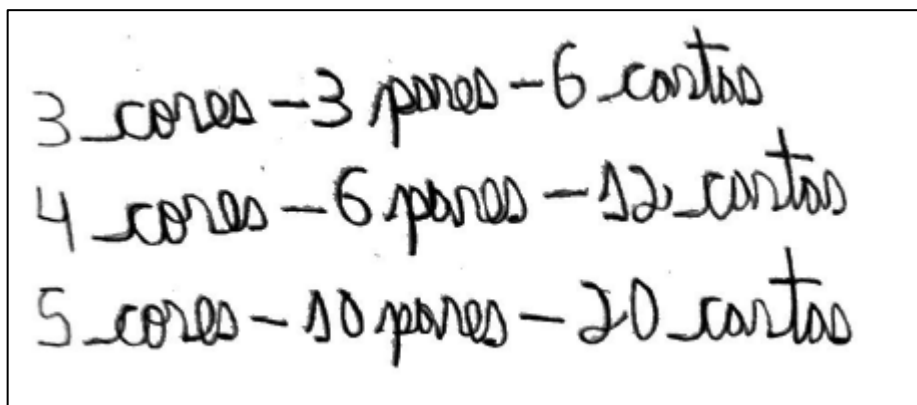 3 cores - 3 pares - 6 cartas
4 cores - 6 pares - 12 cartas
5 cores - 10 pares - 20 cartas